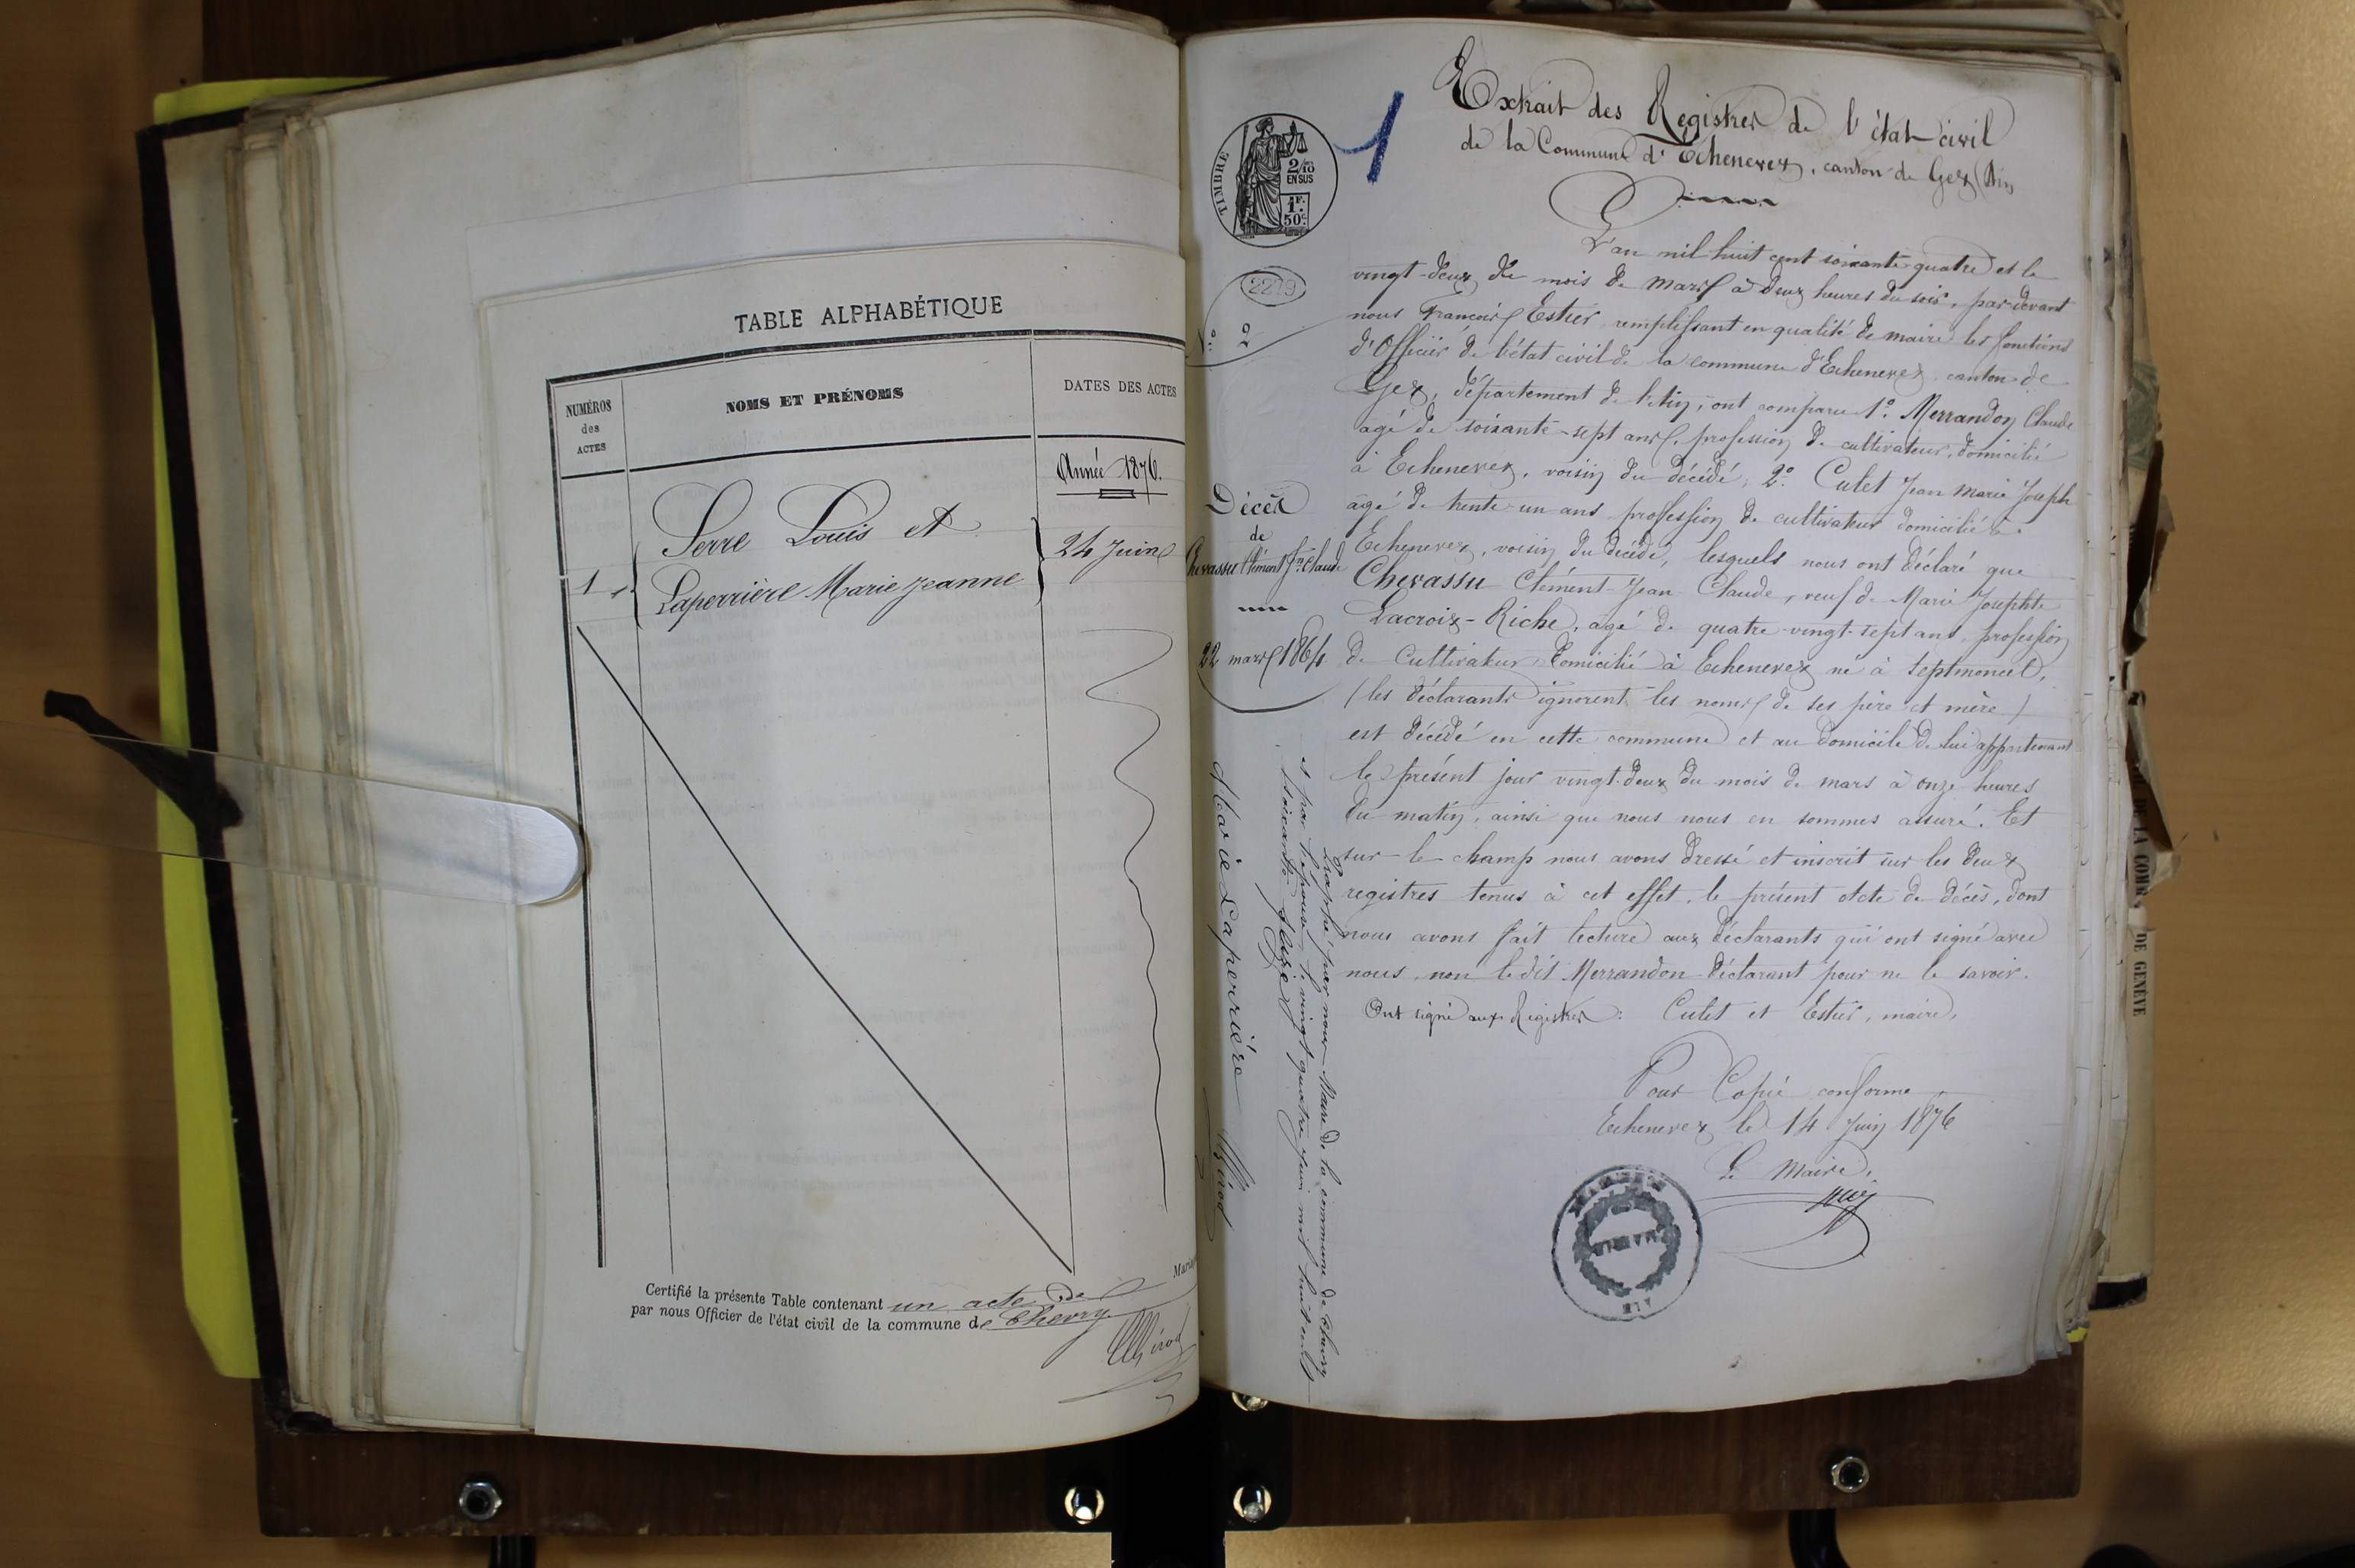 TABLE ALPHABÉTIQUE
NUMÉROS
des
ACTES
NOMS ET PRÉNOMS
DATES DES ACTES
Année 1876.
1
Serre Louis et
Laperrière Marie Jeanne
24 Juin
Certifié la présente Table contenant un acte de
par nous Officier de l'état civil de la commune de Chevry
TIMBRE
2/10
EN SUS
1F.
50c.
1
2219
Extrait des Registres de l'état civil
de la Commune d'Echenevex, canton de Gex (Ain)
L'an mil huit cent soixante quatre et le
vingt-deux du mois de mars à deux heures du soir, par-devant
nous François Estier remplissant en qualité de maire les fonctions
d'Officier de l'état civil de la commune d'Echenevex, canton de
Gex, département de l'Ain, ont comparu 1º. Merrandon Claude
agé de soixante-sept ans, profession de cultivateur, domicilié
à Echenevex, voisin du décédé, 2º. Culet Jean Marie Joseph
agé de trente-un ans profession de cultivateur domicilié à
Echenevex, voisin du décédé, lesquels nous ont déclaré que
Chevassu Clément-Jean-Claude, veuf de Marie Josephte
Lacroix-Riche, agé de quatre-vingt-sept ans, profession
de Cultivateur, domicilié à Echenevex né à Septmoncel,
(les déclarants ignorent les noms de ses père et mère)
est décédé en cette commune et au domicile de lui appartenant
le présent jour vingt-deux du mois de mars à onze heures
du matin, ainsi que nous nous en sommes assuré. Et
sur-le-champ nous avons dressé et inscrit sur les deux
registres tenus à cet effet, le présent Acte de décès, dont
nous avons fait lecture aux déclarants qui ont signé avec
nous, non ledit Merrandon déclarant pour ne le savoir.
Ont signé aux Registres: Culet et Estier, maire,
Pour Copie conforme
Echenevex le 14 Juin 1876
Le Maire,
MAIRIE
Décès
de
Chevassu Clément Jn Claude
22 mars 1864
Paraphé par nous Maire de la commune de Chevry
et par l'épouse le vingt quatre juin mil huit cent
soixante seize
Marie Laperrière